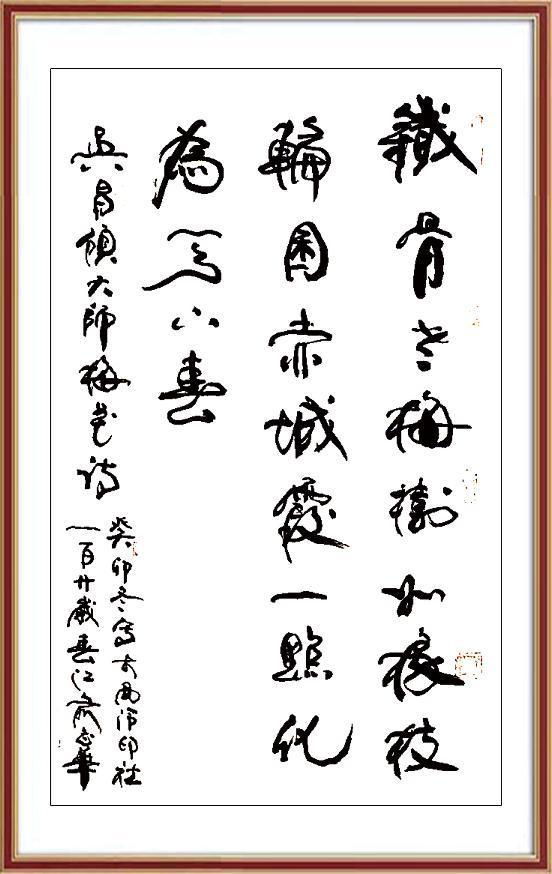 鐵骨老梅樹如椽枝
輪囷赤城霞一點化
為天下春
吳昌碩大師梅花詩
癸卯冬寫於西泠印社
一百廿歲春江